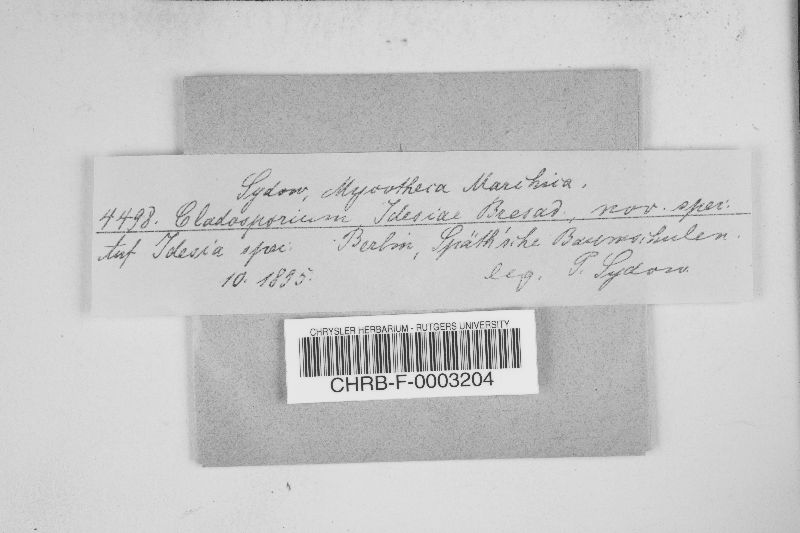 Sydow, Mycotheca Marchica.
4498. Cladosporium Idesiae Bresad., nov. spec.
Auf Idesia spec. Berlin, Späth'sche Baumschulen.
10. 1895. leg. P. Sydow.
CHRYSLER HERBARIUM - RUTGERS UNIVERSITY
CHRB-F-0003204